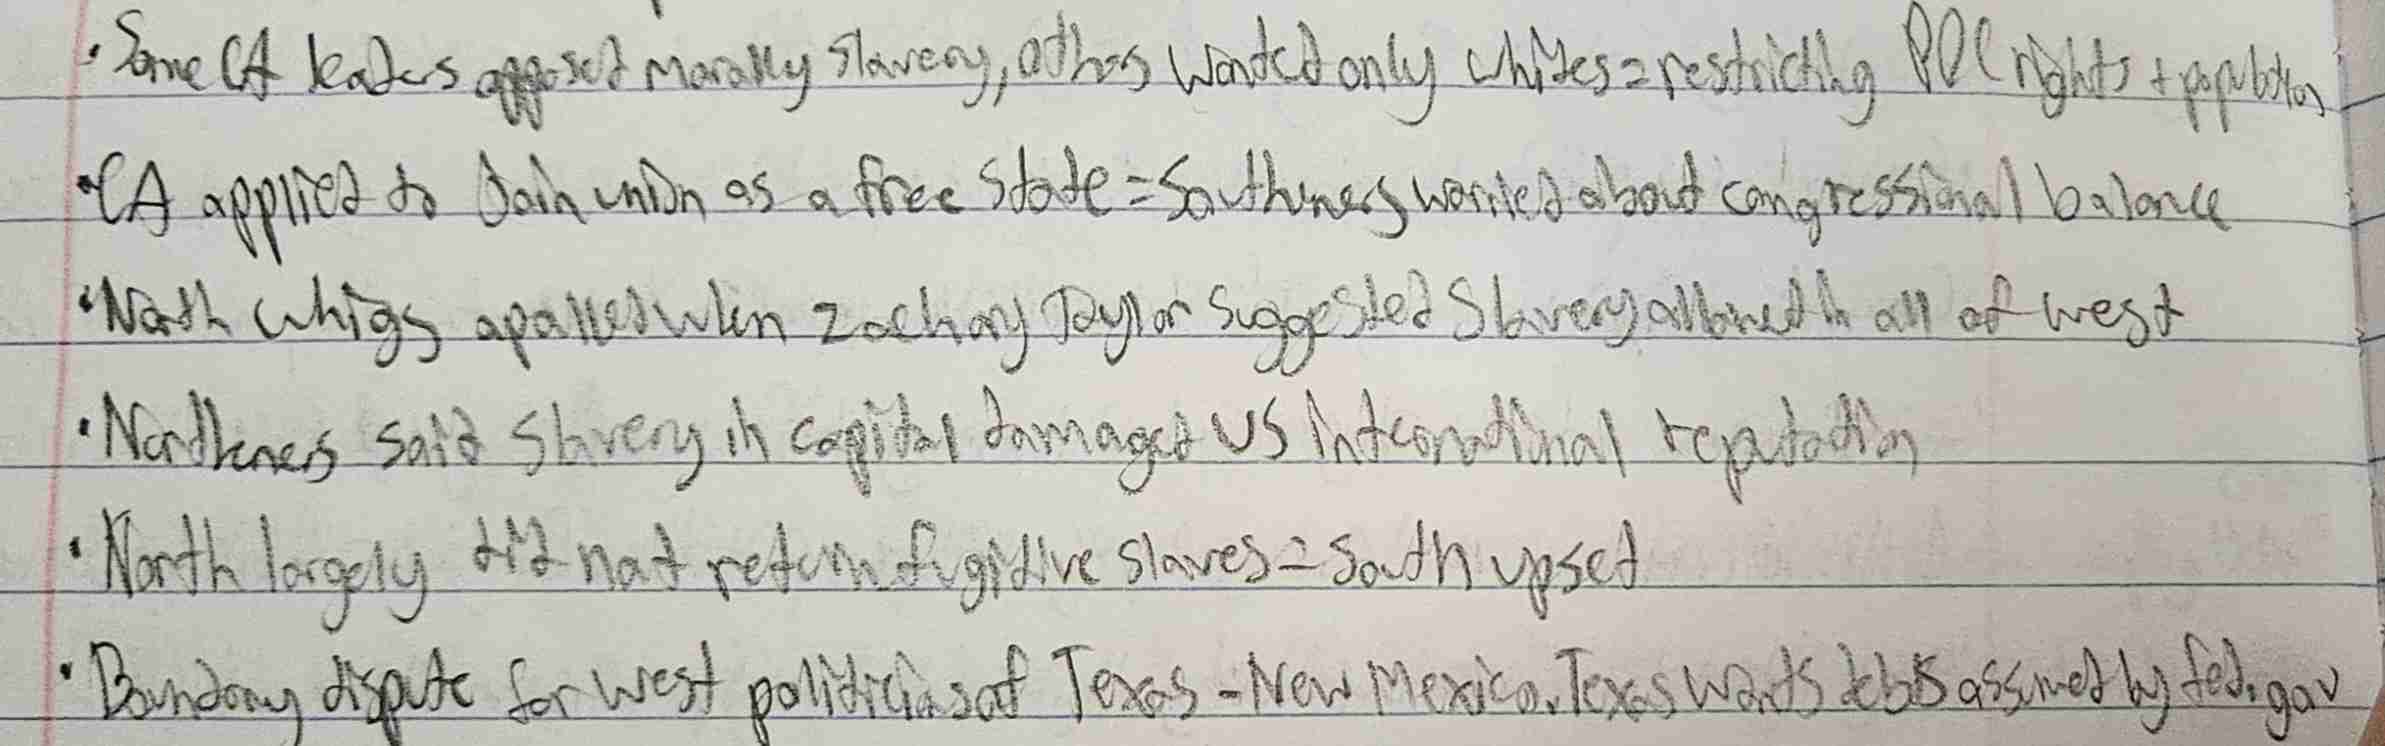 • Some CA leaders opposed morally slavery, others wanted only whites = restricting POC rights + population
• CA applied to join union as a free state = Southerners worried about congressional balance
• North Whigs apalled when Zachary Taylor suggested slavery allowed in all of west
• Northeners said slavery in capital damaged US international reputation
• North largely did not return fugitive slaves = South upset
• Boundary dispute for west politicians of Texas - New Mexico. Texas wants debts assumed by fed. gov